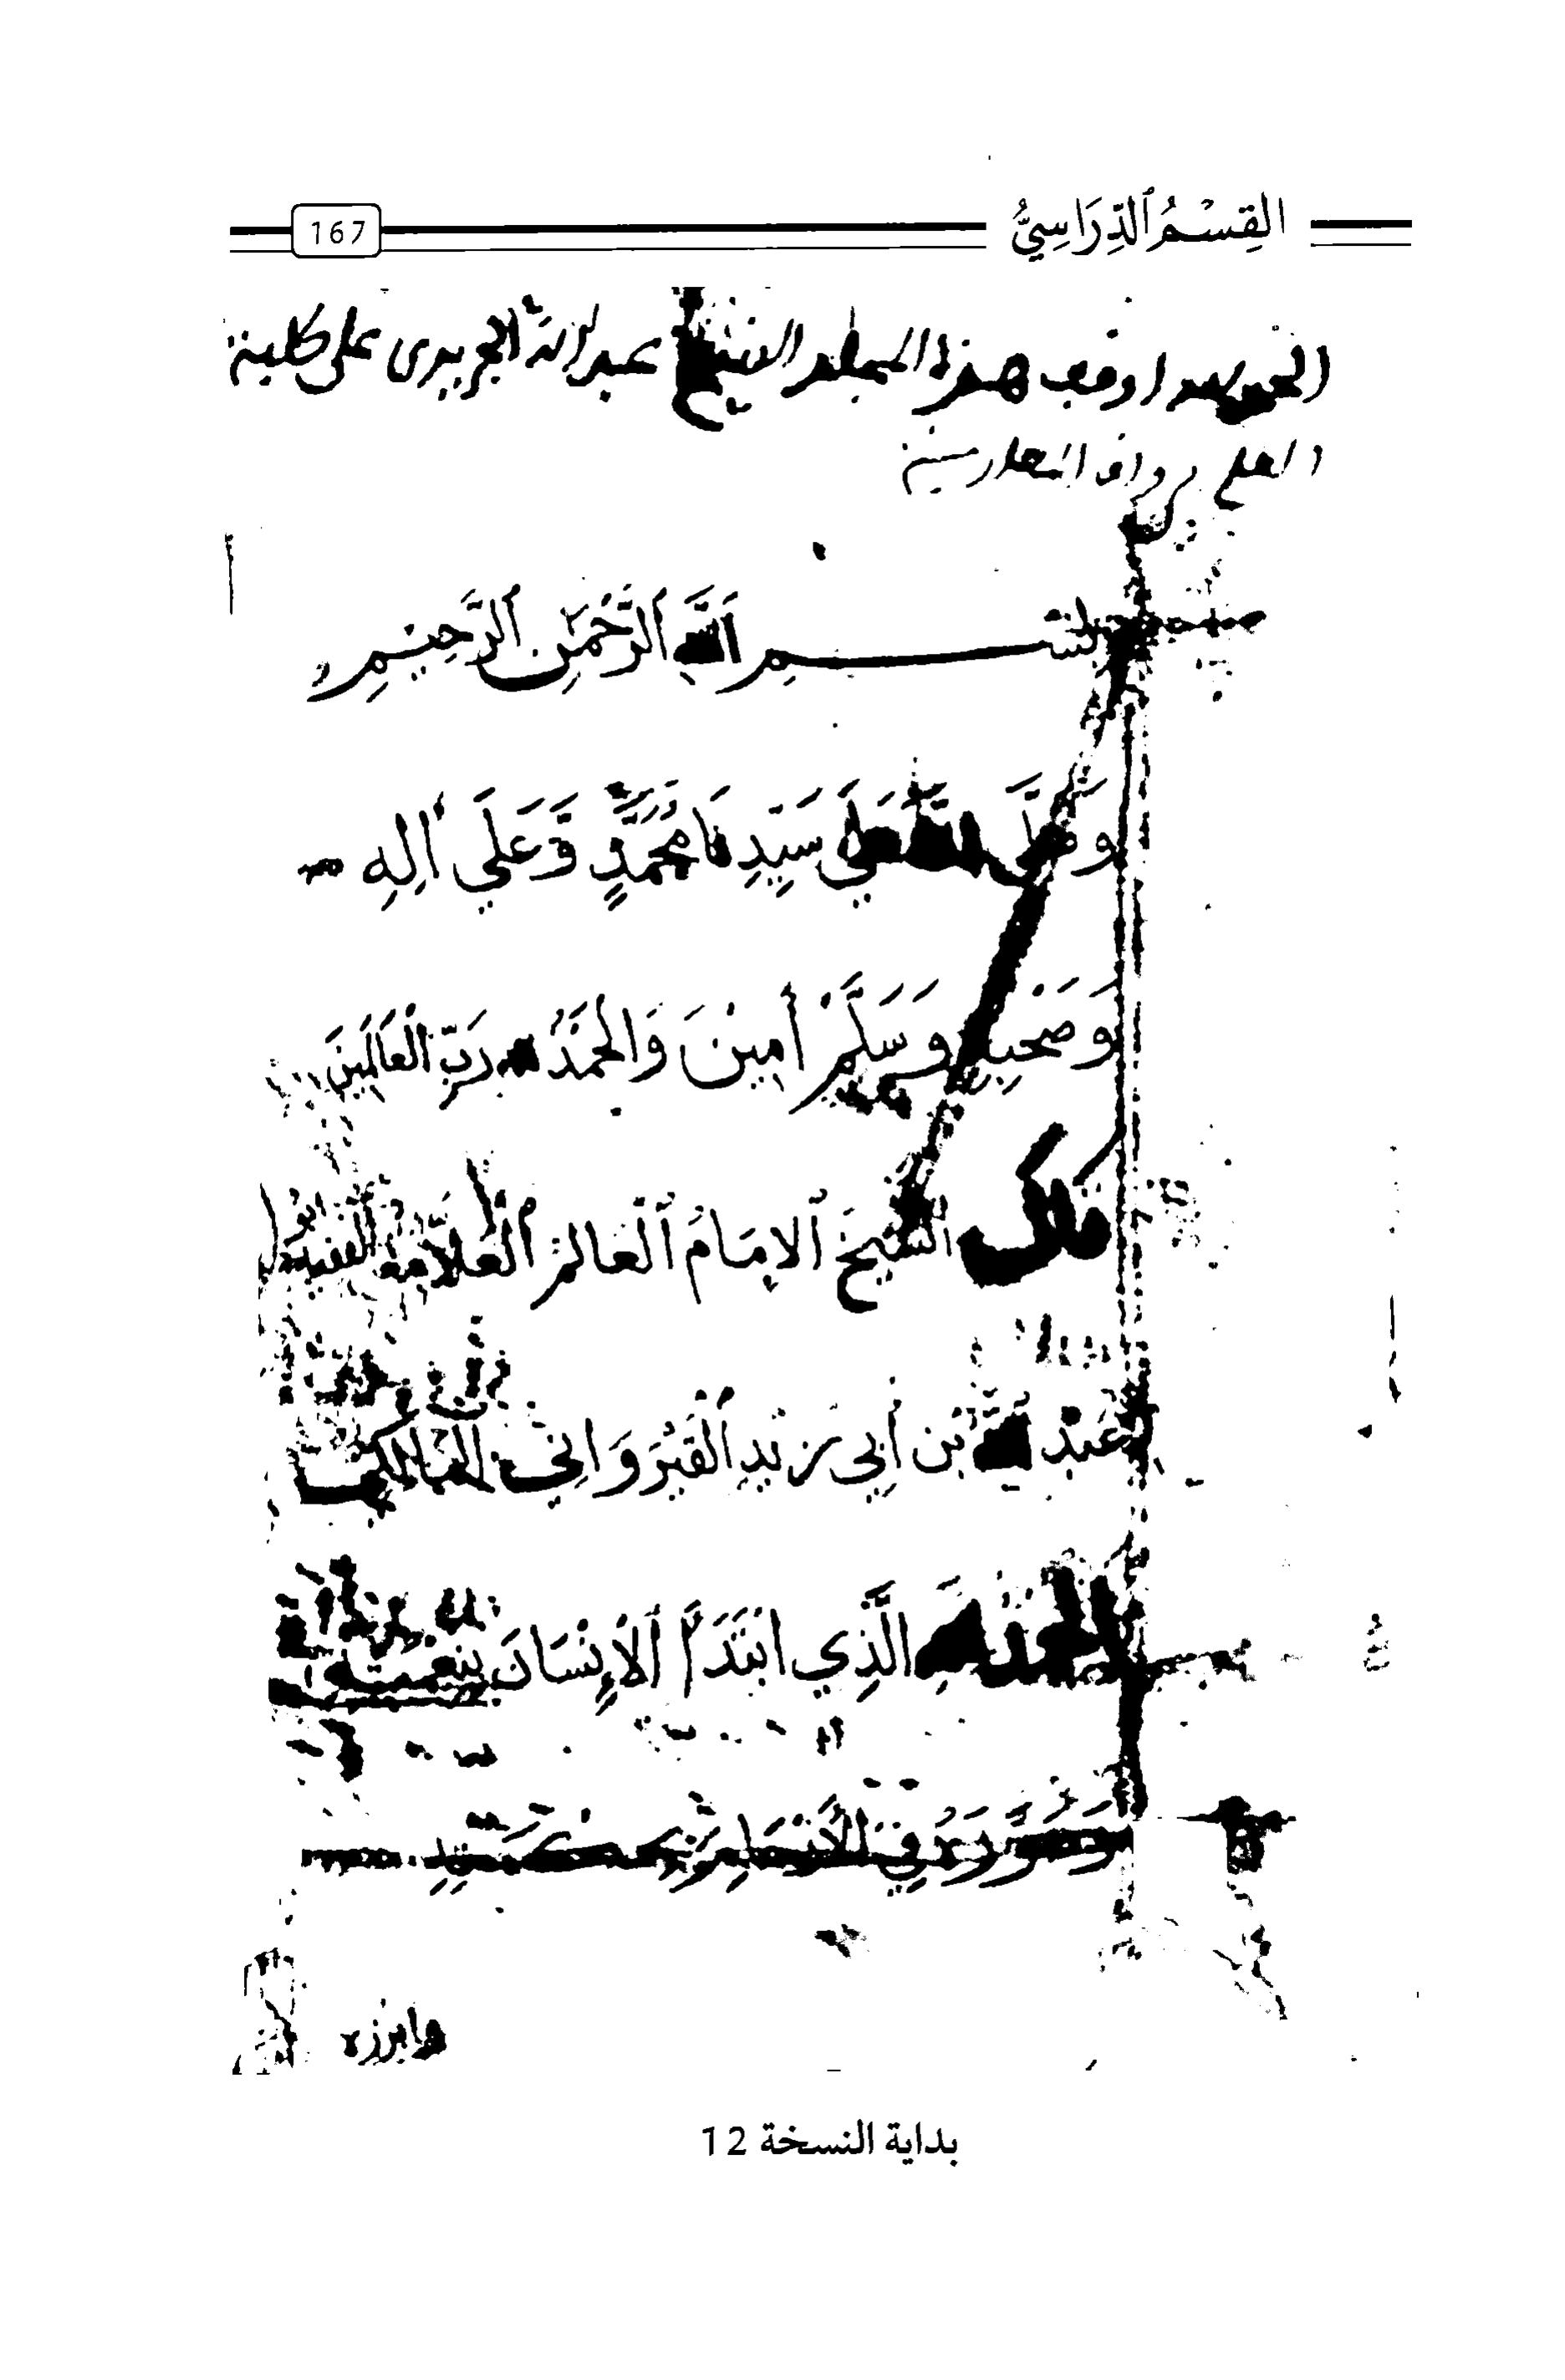 القِسْمُ ٱلدِّرَاسِيُّ
167
الحمد لله اوقف هذا المجلد الشيخ عبد الله الجريرى على كلية
العلم برواق المغاربة
بِسْمِ اللَّهِ الرَّحْمَٰنِ الرَّحِيمِ
وَصَلَّى اللَّهُ عَلَي سَيِّدِنَا مُحَمَّدٍ وَّعَلَي اٰلِهِ
وَصَحْبِهِ وَسَلَّمْ أٰمِيْنَ وَالْحَمْدُ لله رَبِّ الْعَالَمِينَ
قال الشَّيْخُ الامَامُ الْعَالمُ الْعَلاَّمَةُ
عَبْدُ الله بْن أَبِي زَيْدٍ الْقَيْرَوَانِي المالكي
الحمد لله الَّذِي ابْتَدَأَ الْإِنْسَانَ بِنِعْمَتِهِ
وَصَوَّرَهُ فِي الْأَرْحَامِ بِحِكْمَتِهِ
وابرزه
بداية النسخة 12